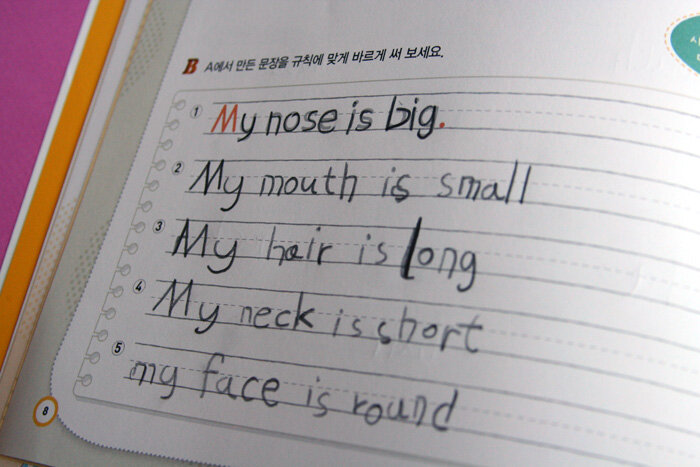 B A에서 만든 문장을 규칙에 맞게 바르게 써 보세요.
1 My nose is big.
2 My mouth is small
3 My hair is long
4 My neck is short
5 my face is round
8